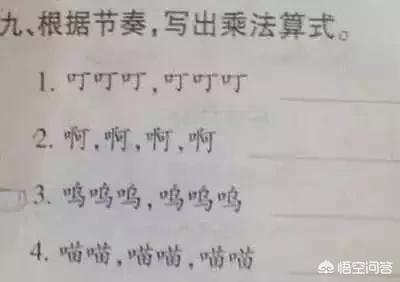 九、根据节奏,写出乘法算式。
1. 叮叮叮,叮叮叮
2. 啊,啊,啊,啊
3. 呜呜呜,呜呜呜
4. 喵喵,喵喵,喵喵
悟空问答